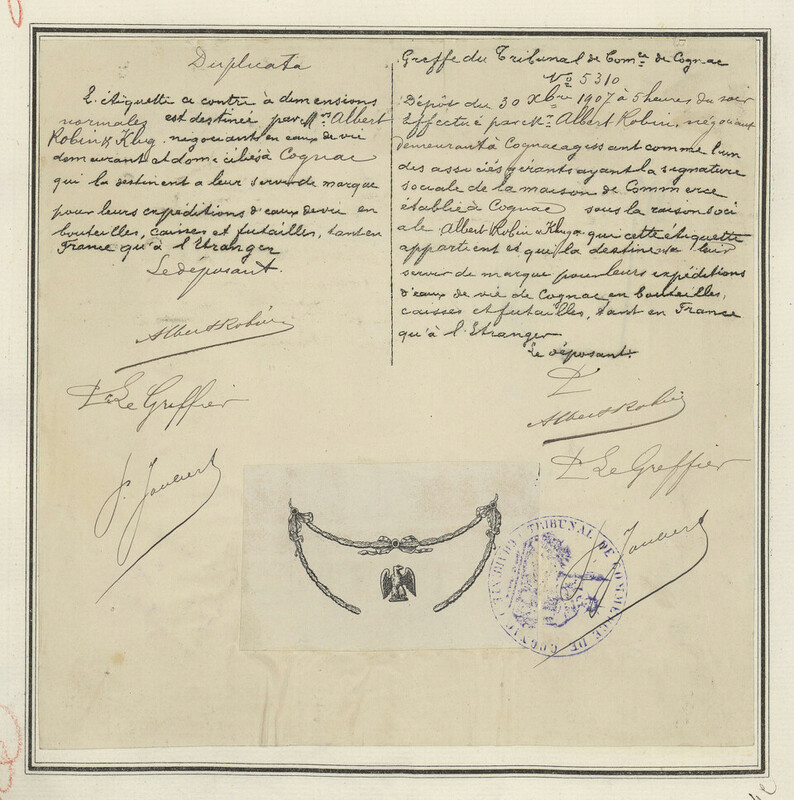 Duplicata
L'étiquette ci contre à dimensions
normales est destinée par Mrs Albert
Robin & Klug négociants en eaux de vie
demeurant et domiciliés à Cognac
qui la destinent a leur servir de marque
pour leurs expéditions d'eaux de vie en
bouteilles, caisses et futailles, tant en
France qu'à l'Etranger
Le déposant.
Albert Robin
Pr Le Greffier
Greffe du Tribunal de Comce de Cognac
No 5310
Dépôt du 30 Xbre 1907 à 5 heures du soir
Effectué par Mr Albert Robin, négociant
demeurant à Cognac agissant comme l'un
des associés gérants ayant la signature
sociale de la maison de Commerce
établie à Cognac sous la raison soci
ale Albert Robin & Klug que cette étiquette
appartient et qui la destine à leur
servir de marque pour leurs expéditions
d'eaux de vie de Cognac en bouteilles,
caisses et futailles, tant en France
qu'à l'Etranger
Le déposant.
Albert Robin
Pr Le Greffier
TRIBUNAL DE COMMERCE DE COGNAC